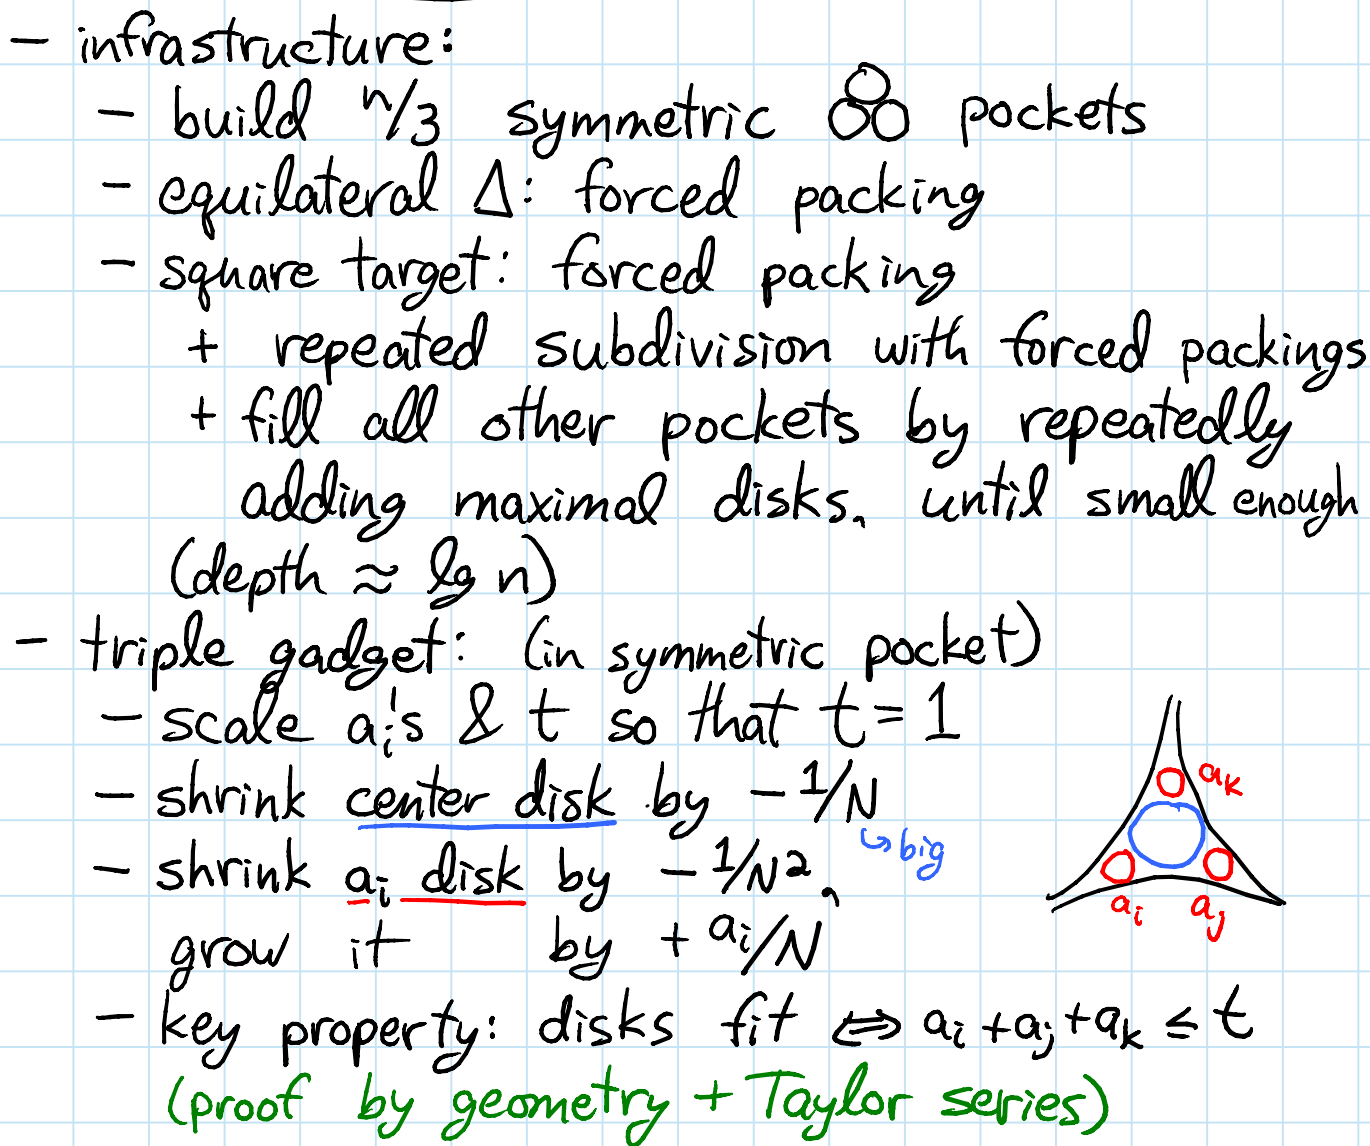 - infrastructure:
- build n/3 symmetric pockets
- equilateral Δ: forced packing
- square target: forced packing
+ repeated subdivision with forced packings
+ fill all other pockets by repeatedly
adding maximal disks, until small enough
(depth ≈ lg n)
- triple gadget: (in symmetric pocket)
- scale aᵢ's & t so that t = 1
- shrink center disk by - 1/N
↳ big
- shrink aᵢ disk by - 1/N²,
grow it by + aᵢ/N
aₖ
aᵢ aⱼ
- key property: disks fit ⟺ aᵢ + aⱼ + aₖ ≤ t
(proof by geometry + Taylor series)